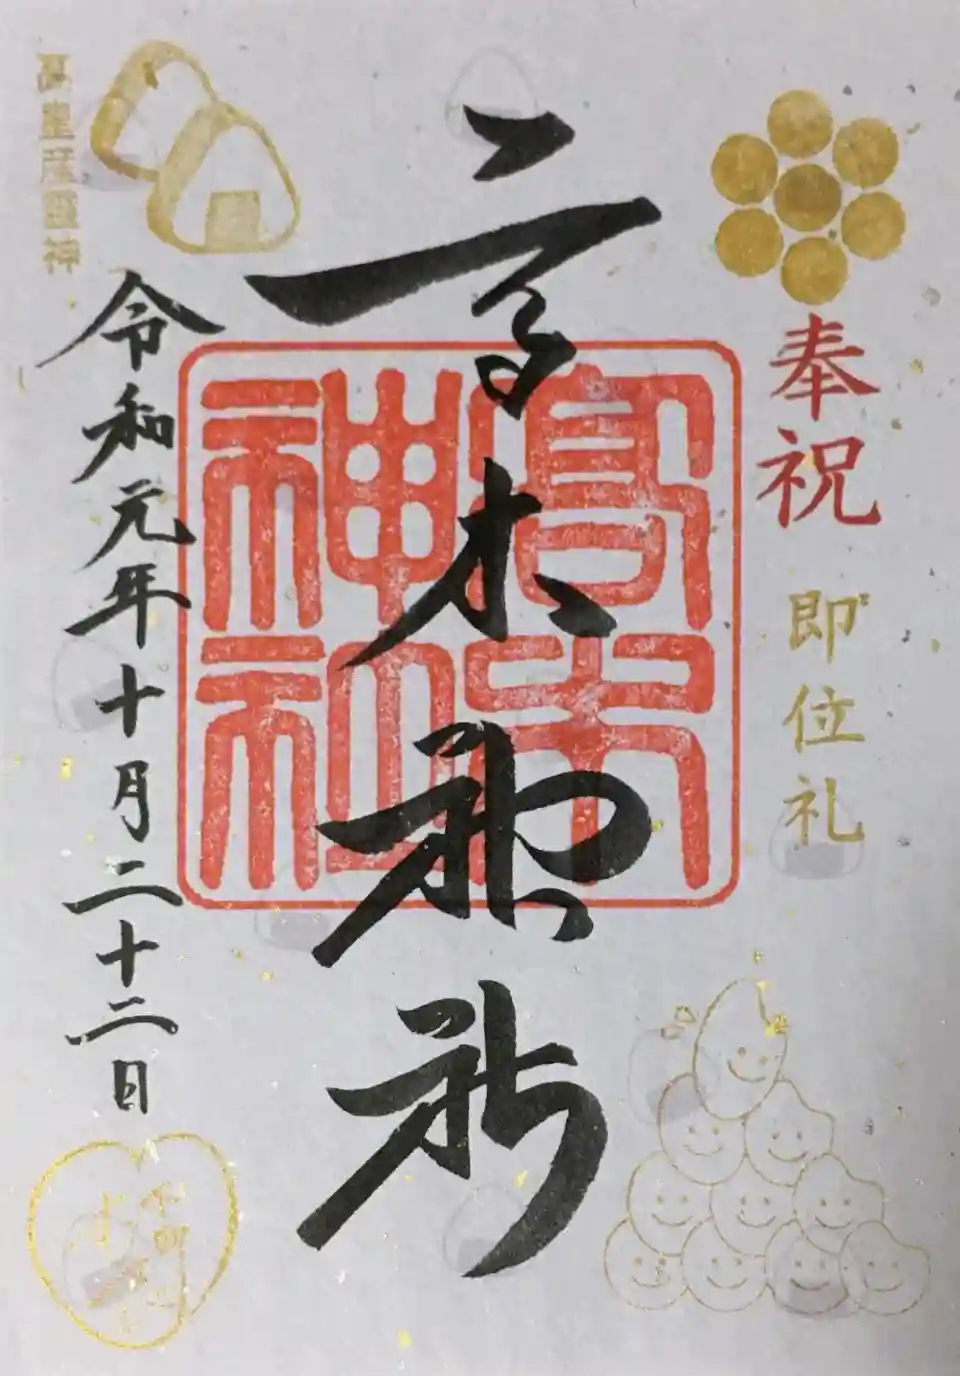 奉祝
即位礼
高木神社
高木神社
令和元年十月二十二日
高皇産霊神